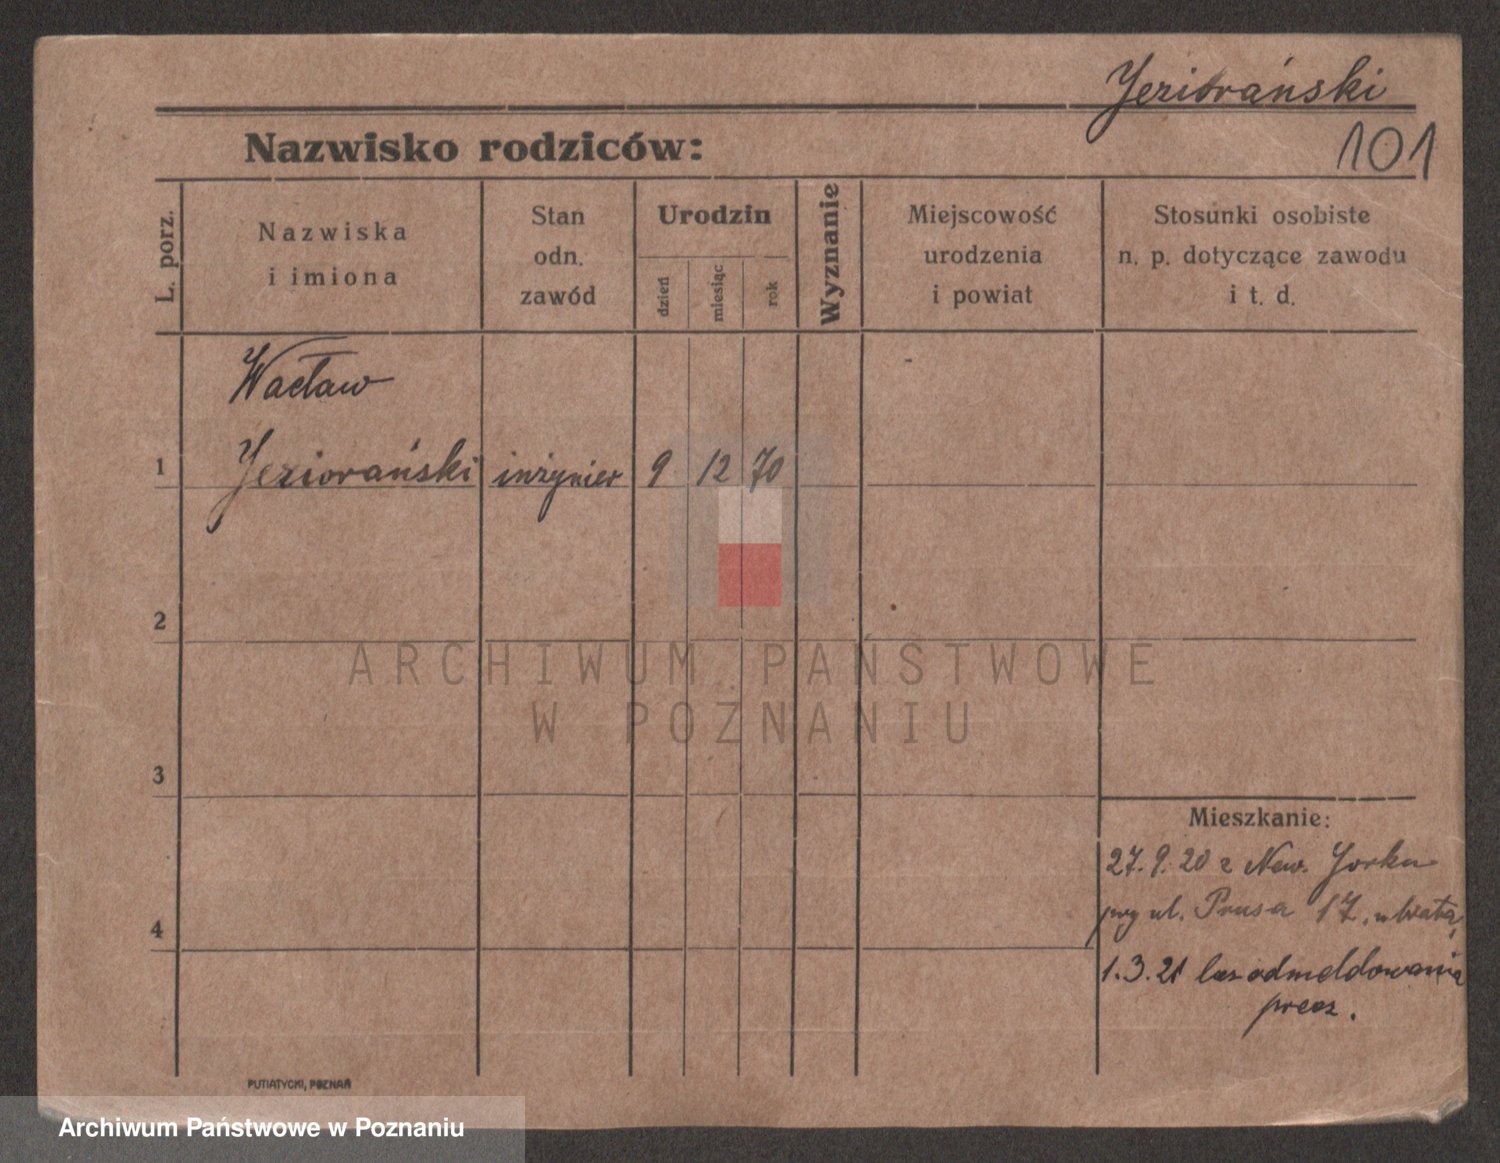 Jeziorański
101
Nazwisko rodziców:
L. porz.
Nazwiska
i imiona
Stan
odn.
zawód
Urodzin
dzień
miesiąc
rok
Wyznanie
Miejscowość
urodzenia
i powiat
Stosunki osobiste
n. p. dotyczące zawodu
i t. d.
Wacław
1 Jeziorański inżynier 9 12 70
2
ARCHIWUM PAŃSTWOWE
W POZNANIU
3
Mieszkanie:
27.9.20 z New. Yorku
ul. Prusa 17.
4
1.3.21 bez odmeldowania
precz.
PUTIATYCKI, POZNAŃ
Archiwum Państwowe w Poznaniu